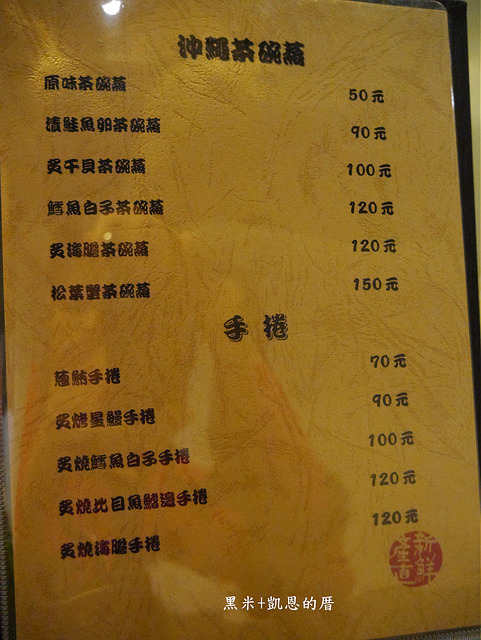 沖繩茶碗蒸
原味茶碗蒸 50元
漬鮭魚卵茶碗蒸 90元
炙干貝茶碗蒸 100元
鱈魚白子茶碗蒸 120元
炙海膽茶碗蒸 120元
松葉蟹茶碗蒸 150元
手捲
蔥鮪手捲 70元
炙烤星鰻手捲 90元
炙燒鱈魚白子手捲 100元
炙燒比目魚鰭邊手捲 120元
炙燒海膽手捲 120元
新鮮
產直
黑米+凱恩的厝